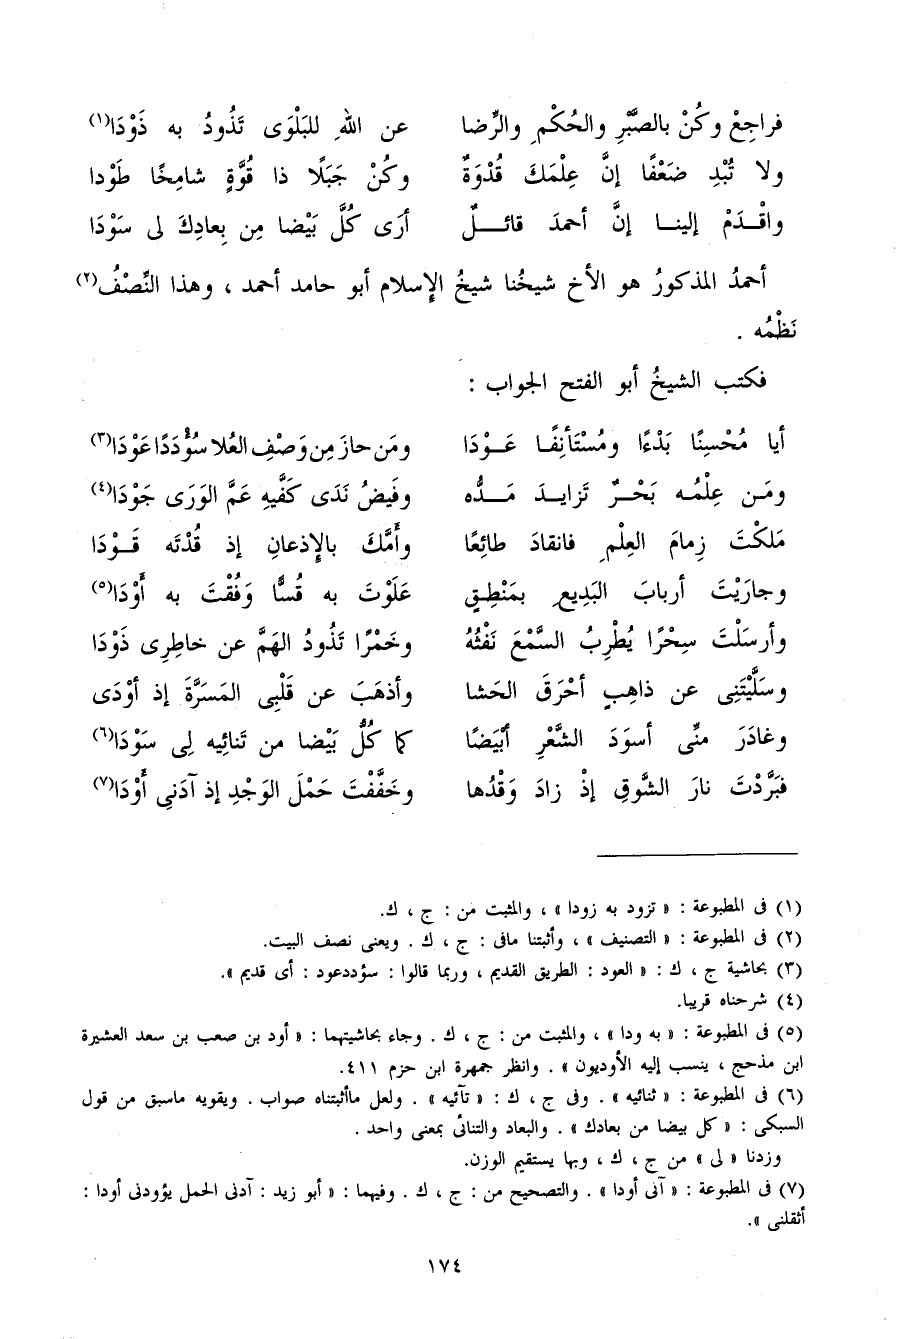 فراجِعْ وكُنْ بالصَّبْرِ والحُكْمِ والرِّضا عن اللهِ للبَلْوَى تَذُودُ به ذَوْدَا(١)
ولا تُبْدِ ضَعْفًا إنَّ عِلْمَكَ قُدْوَةٌ وكُنْ جَبَلًا ذا قُوَّةٍ شامِخًا طَوْدا
واقْدَمْ إلينا إنَّ أحمدَ قائلٌ أرَى كُلَّ بَيْضا مِن بِعادِكَ لى سَوْدَا
أحمدُ المذكورُ هو الأخ شيخُنا شيخُ الإسلام أبو حامد أحمد ، وهذا النِّصْفُ(٢)
نَظْمُه .
فكتب الشيخُ أبو الفتح الجواب :
أيا مُحْسِنًا بَدْءًا ومُسْتَأنِفًا عَوْدَا ومَن حازَ مِن وَصْفِ العُلا سُؤْدَدًا عَوْدَا(٣)
ومَن عِلْمُه بَحْرٌ تزايدَ مَدُّه وفَيضُ نَدَى كَفَّيهِ عَمَّ الوَرَى جَوْدَا(٤)
مَلَكْتَ زِمامَ العِلْمِ فانقادَ طائِعًا وأَمَّكَ بالإذعانِ إذ قُدْتَه قَوْدَا
وجارَيْتَ أربابَ البَدِيعِ بمَنْطِقٍ عَلَوْتَ به قُسًّا وَفُقْتَ به أَوْدَا(٥)
وأرسَلْتَ سِحْرًا يُطْرِبُ السَّمْعَ نَفْثُهُ وخَمْرًا تَذُودُ الهَمَّ عن خاطِرِى ذَوْدَا
وسَلَّيْتَنِى عن ذاهِبٍ أحْرَقَ الحَشا وأذهَبَ عن قَلْبِى المَسَرَّةَ إذ أوْدَى
وغادَرَ منِّى أسوَدَ الشَّعْرِ أبْيَضًا كما كُلُّ بَيْضا من تَنائِيه لِى سَوْدَا(٦)
فبَرَّدْتَ نارَ الشَّوقِ إذْ زادَ وَقْدُها وخَفَّفْتَ حَمْلَ الوَجْدِ إذ آدَنى أَوْدَا(٧)
(١) فى المطبوعة : « تزود به زودا » ، والمثبت من : ج ، ك.
(٢) فى المطبوعة : « التصنيف » ، وأثبتنا مافى : ج ، ك . ويعنى نصف البيت.
(٣) بحاشية ج ، ك : « العود : الطريق القديم ، وربما قالوا : سؤددعود : أى قديم ».
(٤) شرحناه قريبا.
(٥) فى المطبوعة : « به ودا » ، والمثبت من : ج ، ك . وجاء بحاشيتهما : « أود بن صعب بن سعد العشيرة
ابن مذحج ، ينسب إليه الأوديون » . وانظر جمهرة ابن حزم ٤١١.
(٦) فى المطبوعة : « ثنائيه » . وفى ج ، ك : « تآئيه » . ولعل ماأثبتناه صواب . ويقويه ماسبق من قول
السبكى : « كل بيضا من بعادك » . والبعاد والتنائى بمعنى واحد .
وزدنا « لى » من ج ، ك ، وبها يستقيم الوزن.
(٧) فى المطبوعة : « آنى أودا » . والتصحيح من : ج ، ك . وفيهما : « أبو زيد : آدنى الحمل يؤودنى أودا :
أثقلنى ».
١٧٤